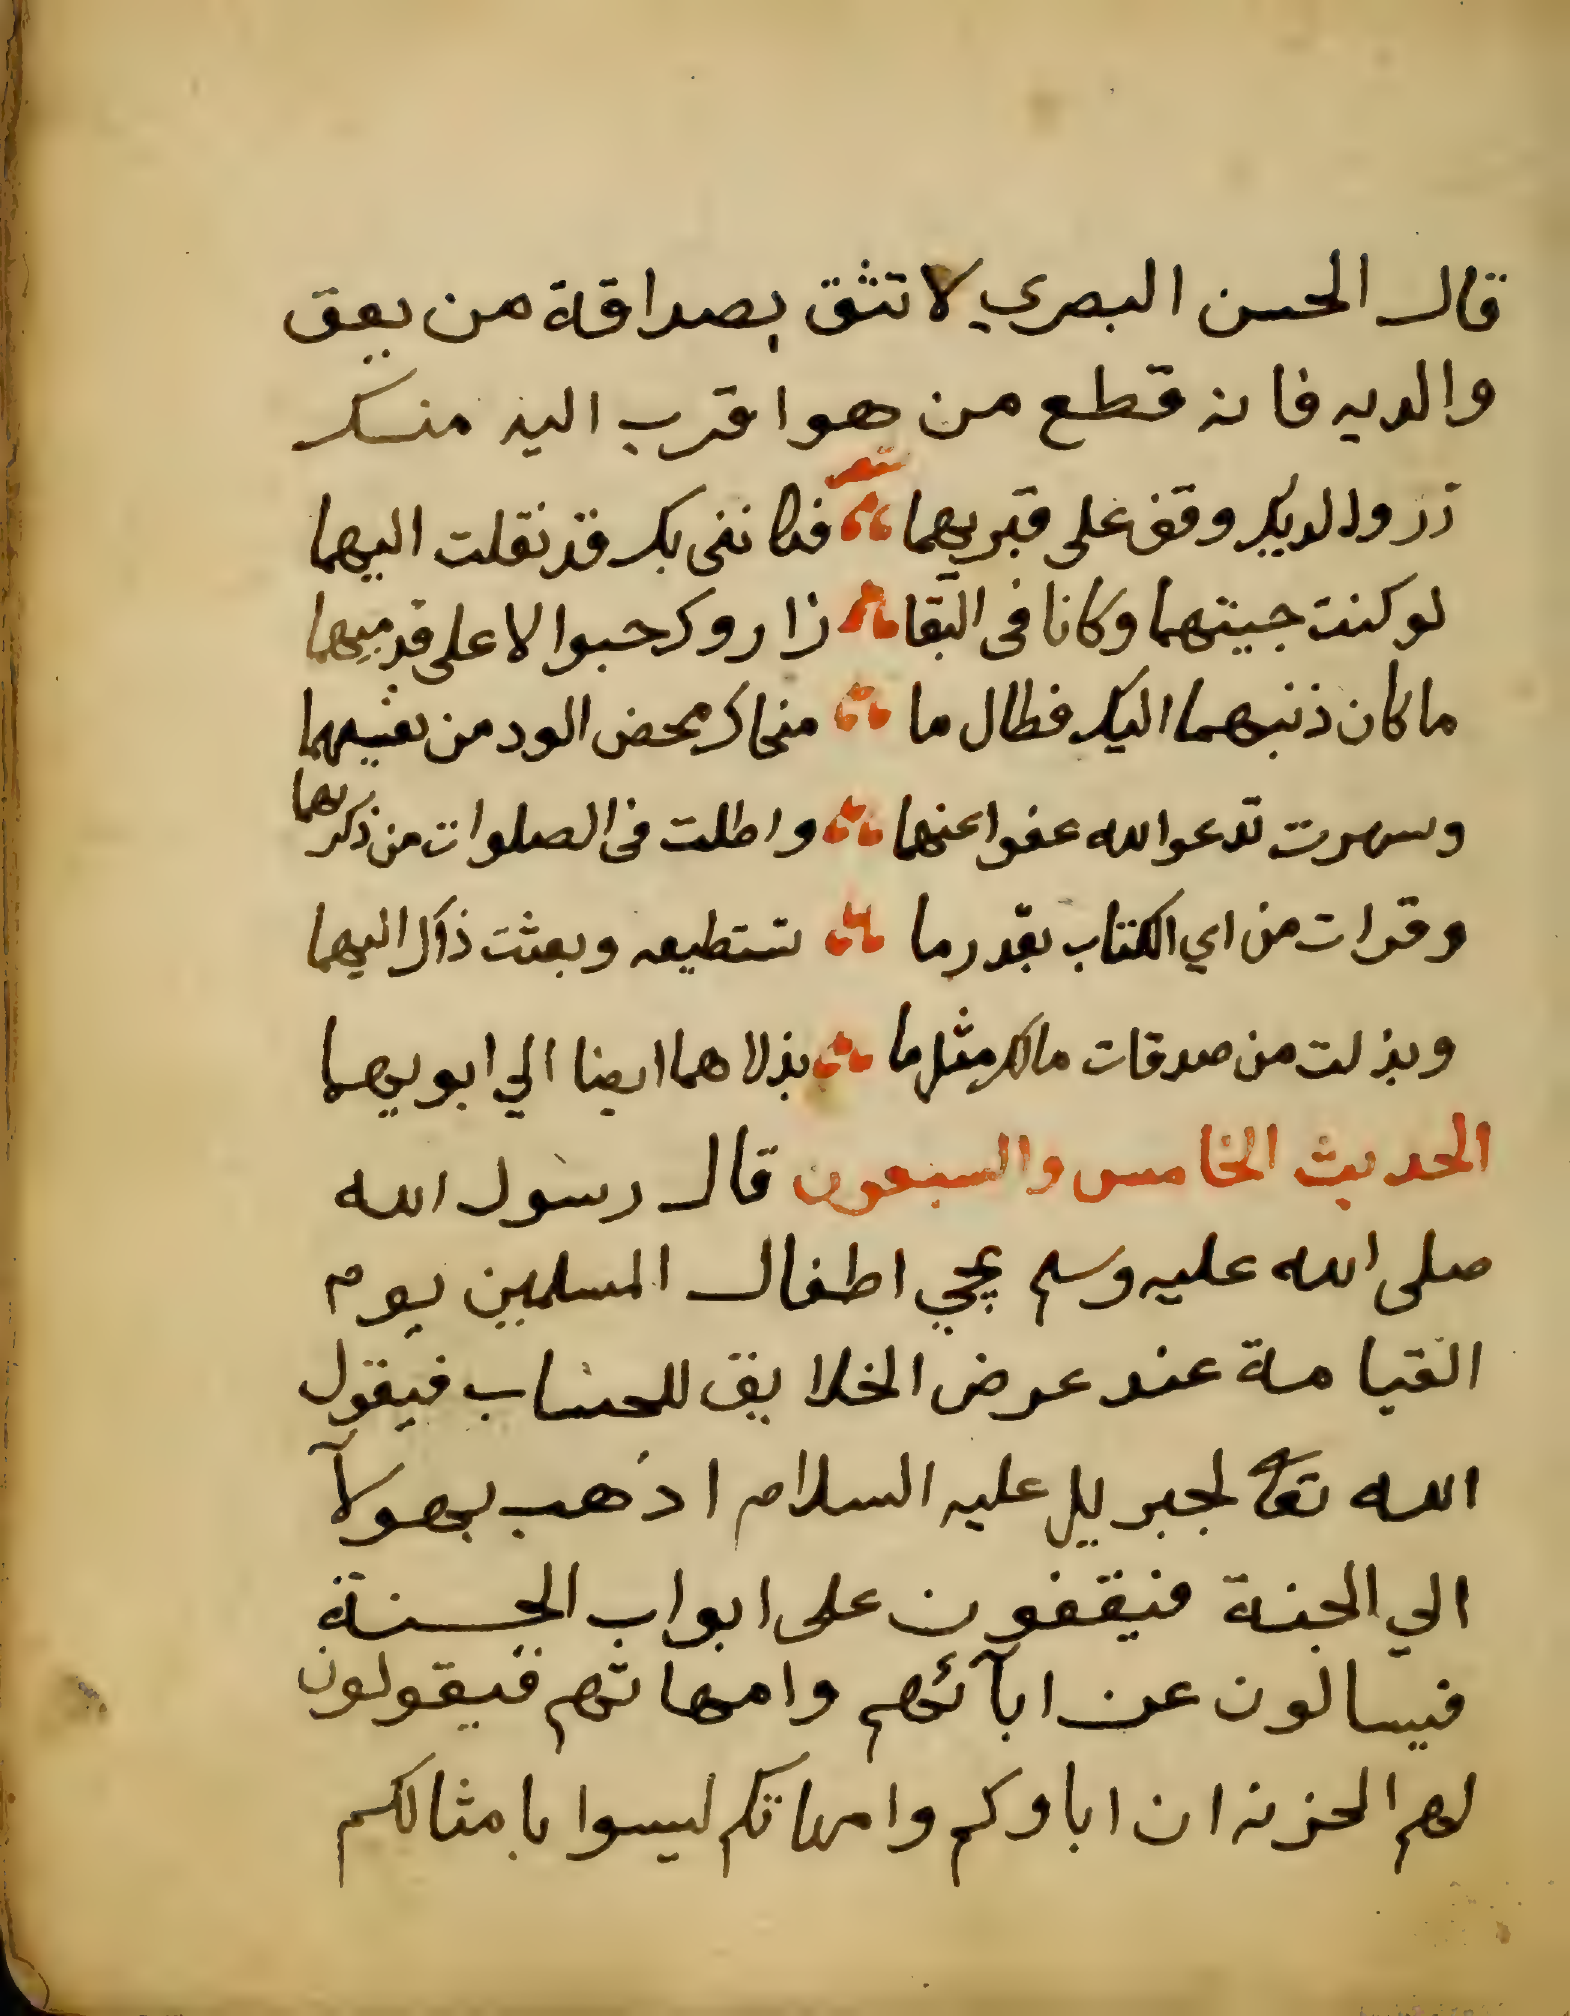 قال الحسن البصري لا تثق بصداقة من يعق
والديه فانه قطع من هو اقرب اليه منك
شعر
زر والديك وقف على قبريهما فكانني بك قد نقلت اليهما
لو كنت جيتهما وكانا في البقا زاروك حبوا لا على قدميهما
ما كان ذنبهما اليك فطال ما منحاك محض الود من نفسيهما
وسهرت تدعوا الله عفوا عنهما واطلت في الصلوات من ذكريهما
وقرات من اي الكتاب بقدر ما تستطيعه وبعثت ذاك اليهما
وبذلت من صدقات مالك مثل ما بذلا هما ايضا الي ابويهما
الحديث الخامس والسبعون قال رسول الله
صلى الله عليه وسلم يجي اطفال المسلمين يوم
القيامة عند عرض الخلايق للحساب فيقول
الله تعا لجبريل عليه السلام اذهب بهولآ
الي الجنة فيقفون على ابواب الجنة
فيسالون عن ابآئهم وامهاتهم فيقولون
لهم الخزنه ان اباوكم وامهاتكم ليسوا بامثالكم